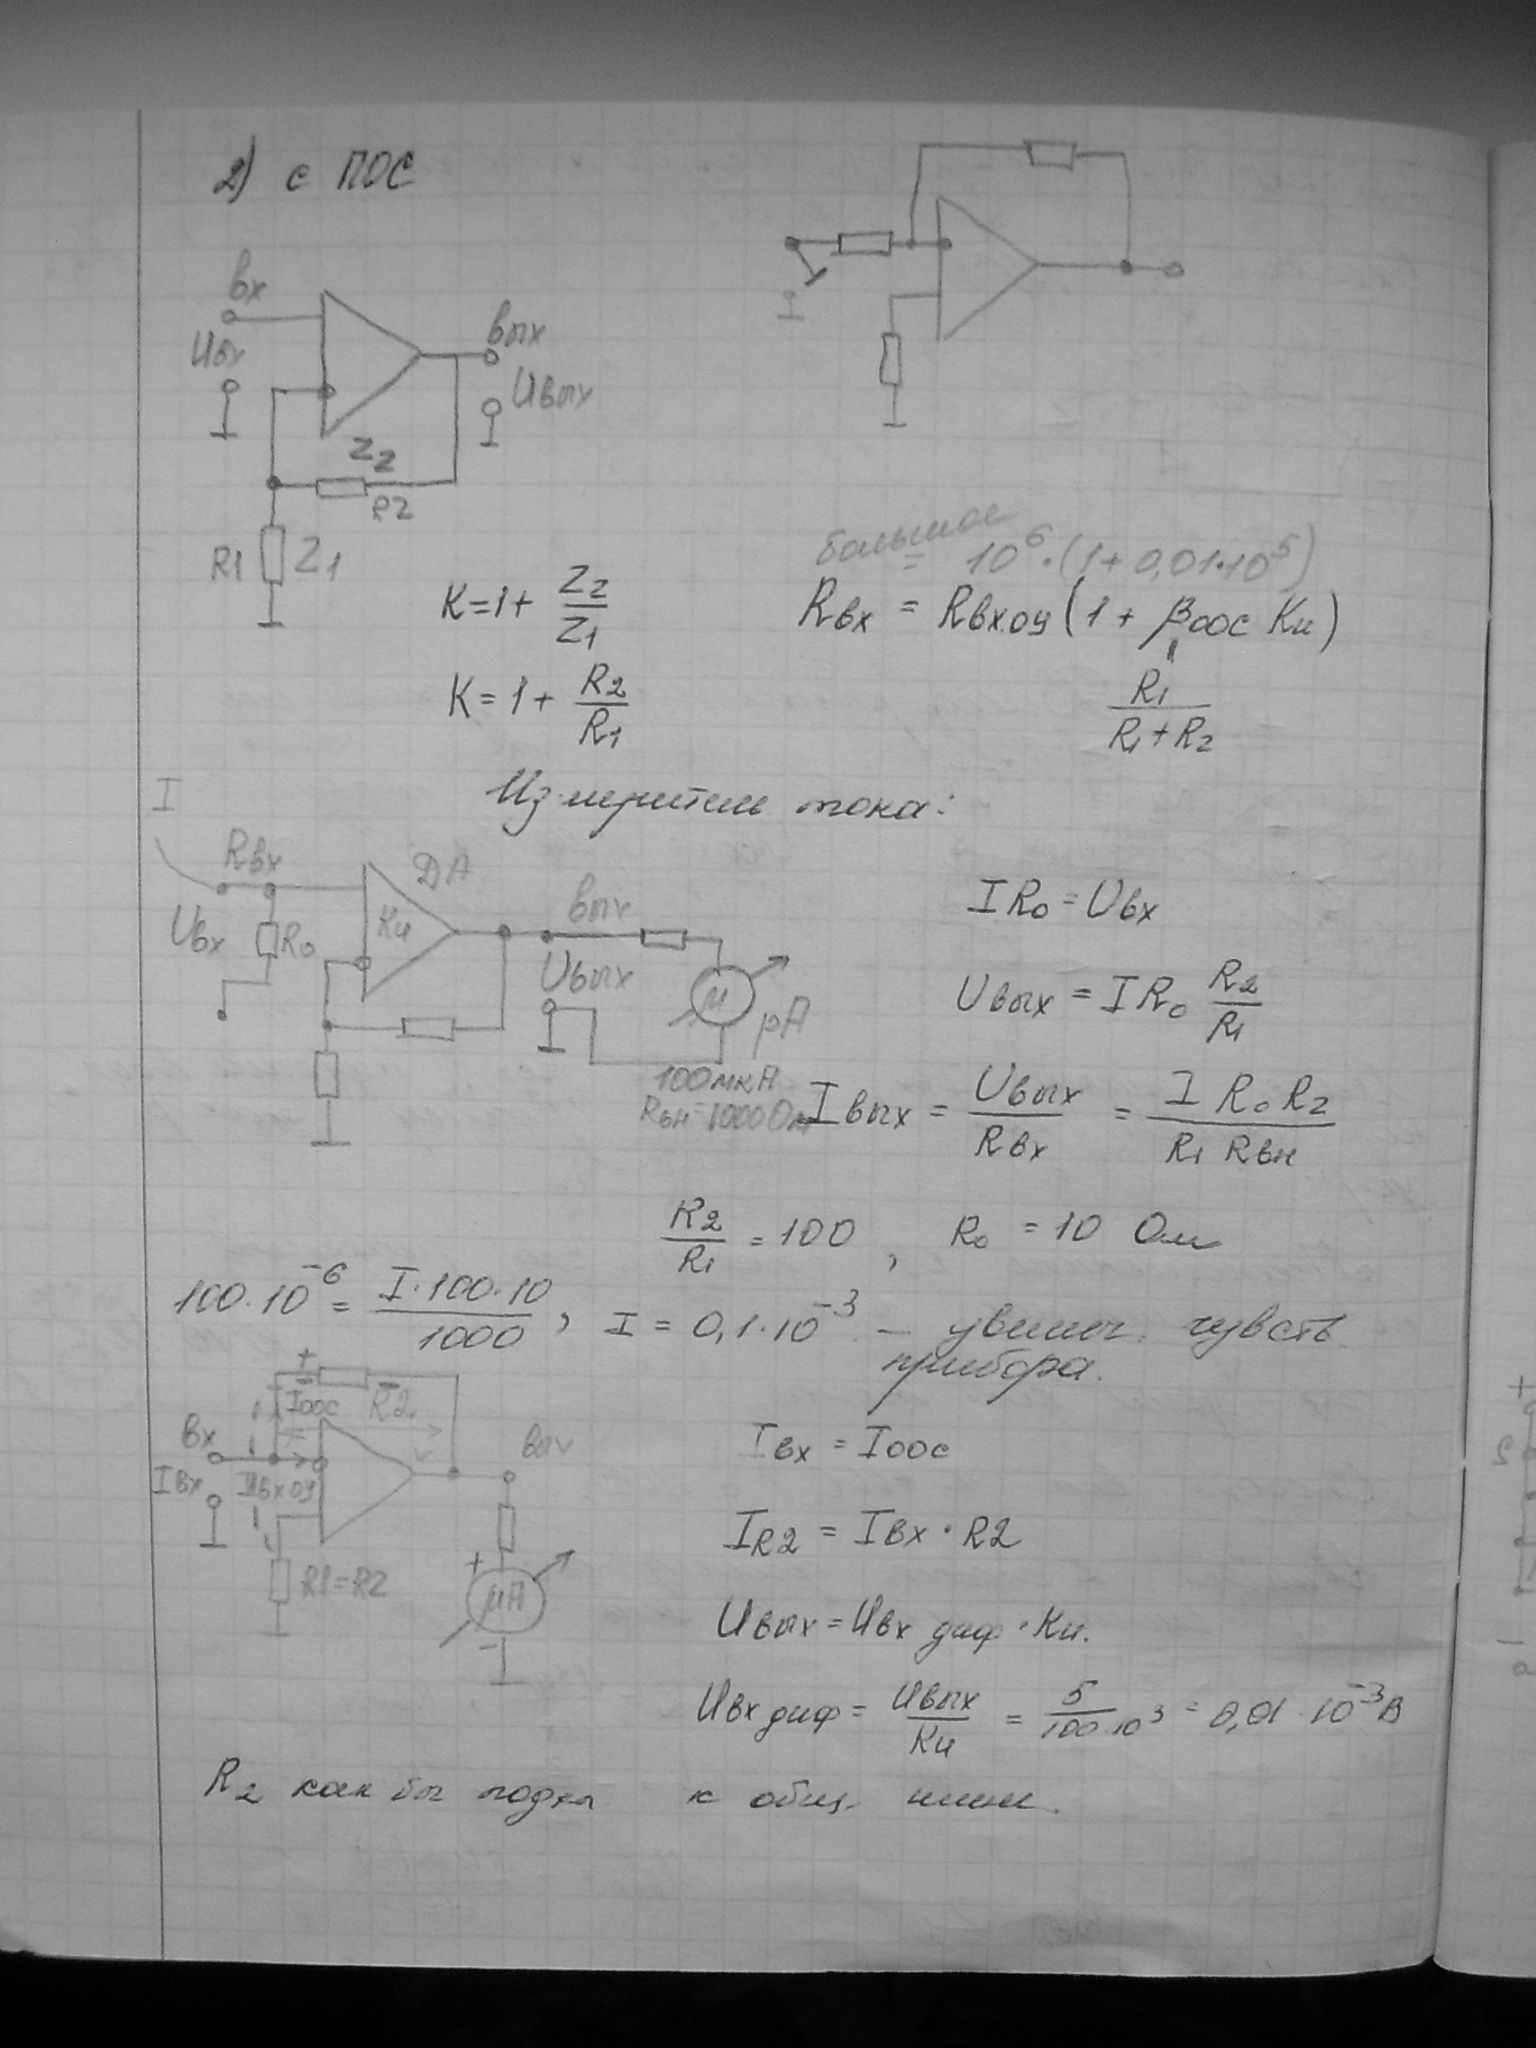 2) с ПОС
Вх
Uвх
Вых
Uвых
Z2
R2
R1 Z1
I
большое
= 10^6 · (1 + 0,01·10^5)
K = 1 + Z2/Z1
Rвх = Rвх.оу (1 + βоос Kи)
K = 1 + R2/R1
R1/(R1 + R2)
Измеритель тока:
I
Rвх
DA
Kи
Uвх
R0
Вых
Uвых
μ
pA
100мкА
Rвн = 1000 Ом
I R0 = Uвх
Uвых = I R0 R2/R1
Iвых = Uвых/Rвх = I R0 R2/(R1 Rвн)
R2/R1 = 100 , R0 = 10 Ом
100·10^-6 = I·100·10/1000 , I = 0,1·10^-3 – увелич. чувств.
прибора.
+ –
Iоос R2
Вх
Iвх
Iвх оу
R1=R2
Вых
+
μA
–
Iвх = Iоос
IR2 = Iвх · R2
Uвых = Uвх диф · Kи.
Uвх диф = Uвых/Kи = 5/(100·10^3) = 0,01·10^-3 В
R2 как бы подкл к общ. шине.